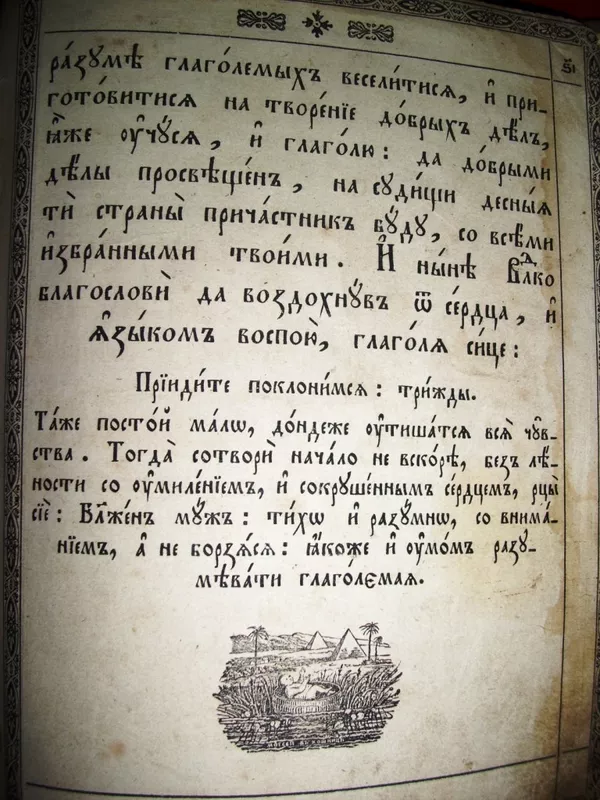 ѕ҃і
ра́зꙋмѣ глаго́лемыхъ весели́тисѧ, и҆ при-
гото́витисѧ на творе́нїе до́брыхъ дѣ́лъ,
ꙗ҆́же ᲂу҆чꙋ́сѧ, и҆ глаго́лю: да до́брыми
дѣ́лы просвѣще́нъ, на сꙋди́щи десны́ѧ
тѝ страны̀ прича́стникъ бꙋ́дꙋ, со всѣ́ми
и҆збра́нными твои́ми. И҆ ны́нѣ влⷣко
благословѝ да воздохнꙋ́въ ѿ се́рдца, и҆
ѧ҆зы́комъ воспою̀, глаго́лѧ си́це:
Прїиди́те поклони́мсѧ: три́жды.
Та́же посто́й ма́лѡ, до́ндеже ᲂу҆тиша́тсѧ всѧ̑ чꙋ́в-
ства. Тогда̀ сотворѝ нача́ло не вско́рѣ, без̾ лѣ́-
ности со ᲂу҆миле́нїемъ, и҆ сокрꙋше́ннымъ се́рдцемъ, рцы̀
сїѐ: Бл҃же́нъ мꙋ́жъ: ти́хѡ и҆ разꙋ́мнѡ, со внима́-
нїемъ, а҆ не борзѧ́сѧ: ꙗ҆́коже и҆ ᲂу҆мо́мъ разꙋ-
мѣва́ти глаго́лємаѧ.